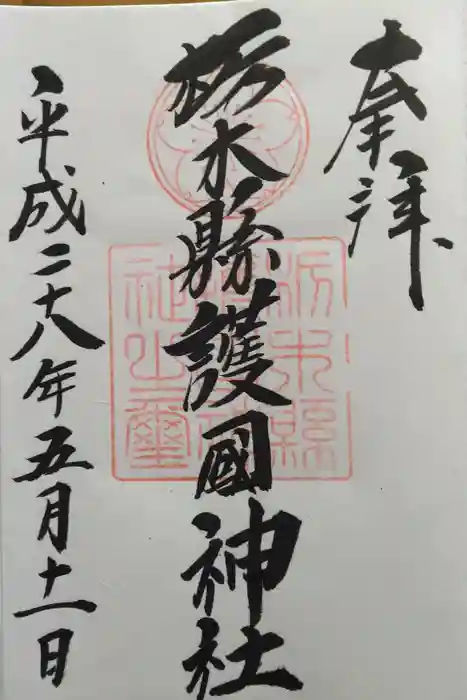 奉拝
栃木縣護國神社
平成二十八年五月十一日
栃木縣護國神社之璽